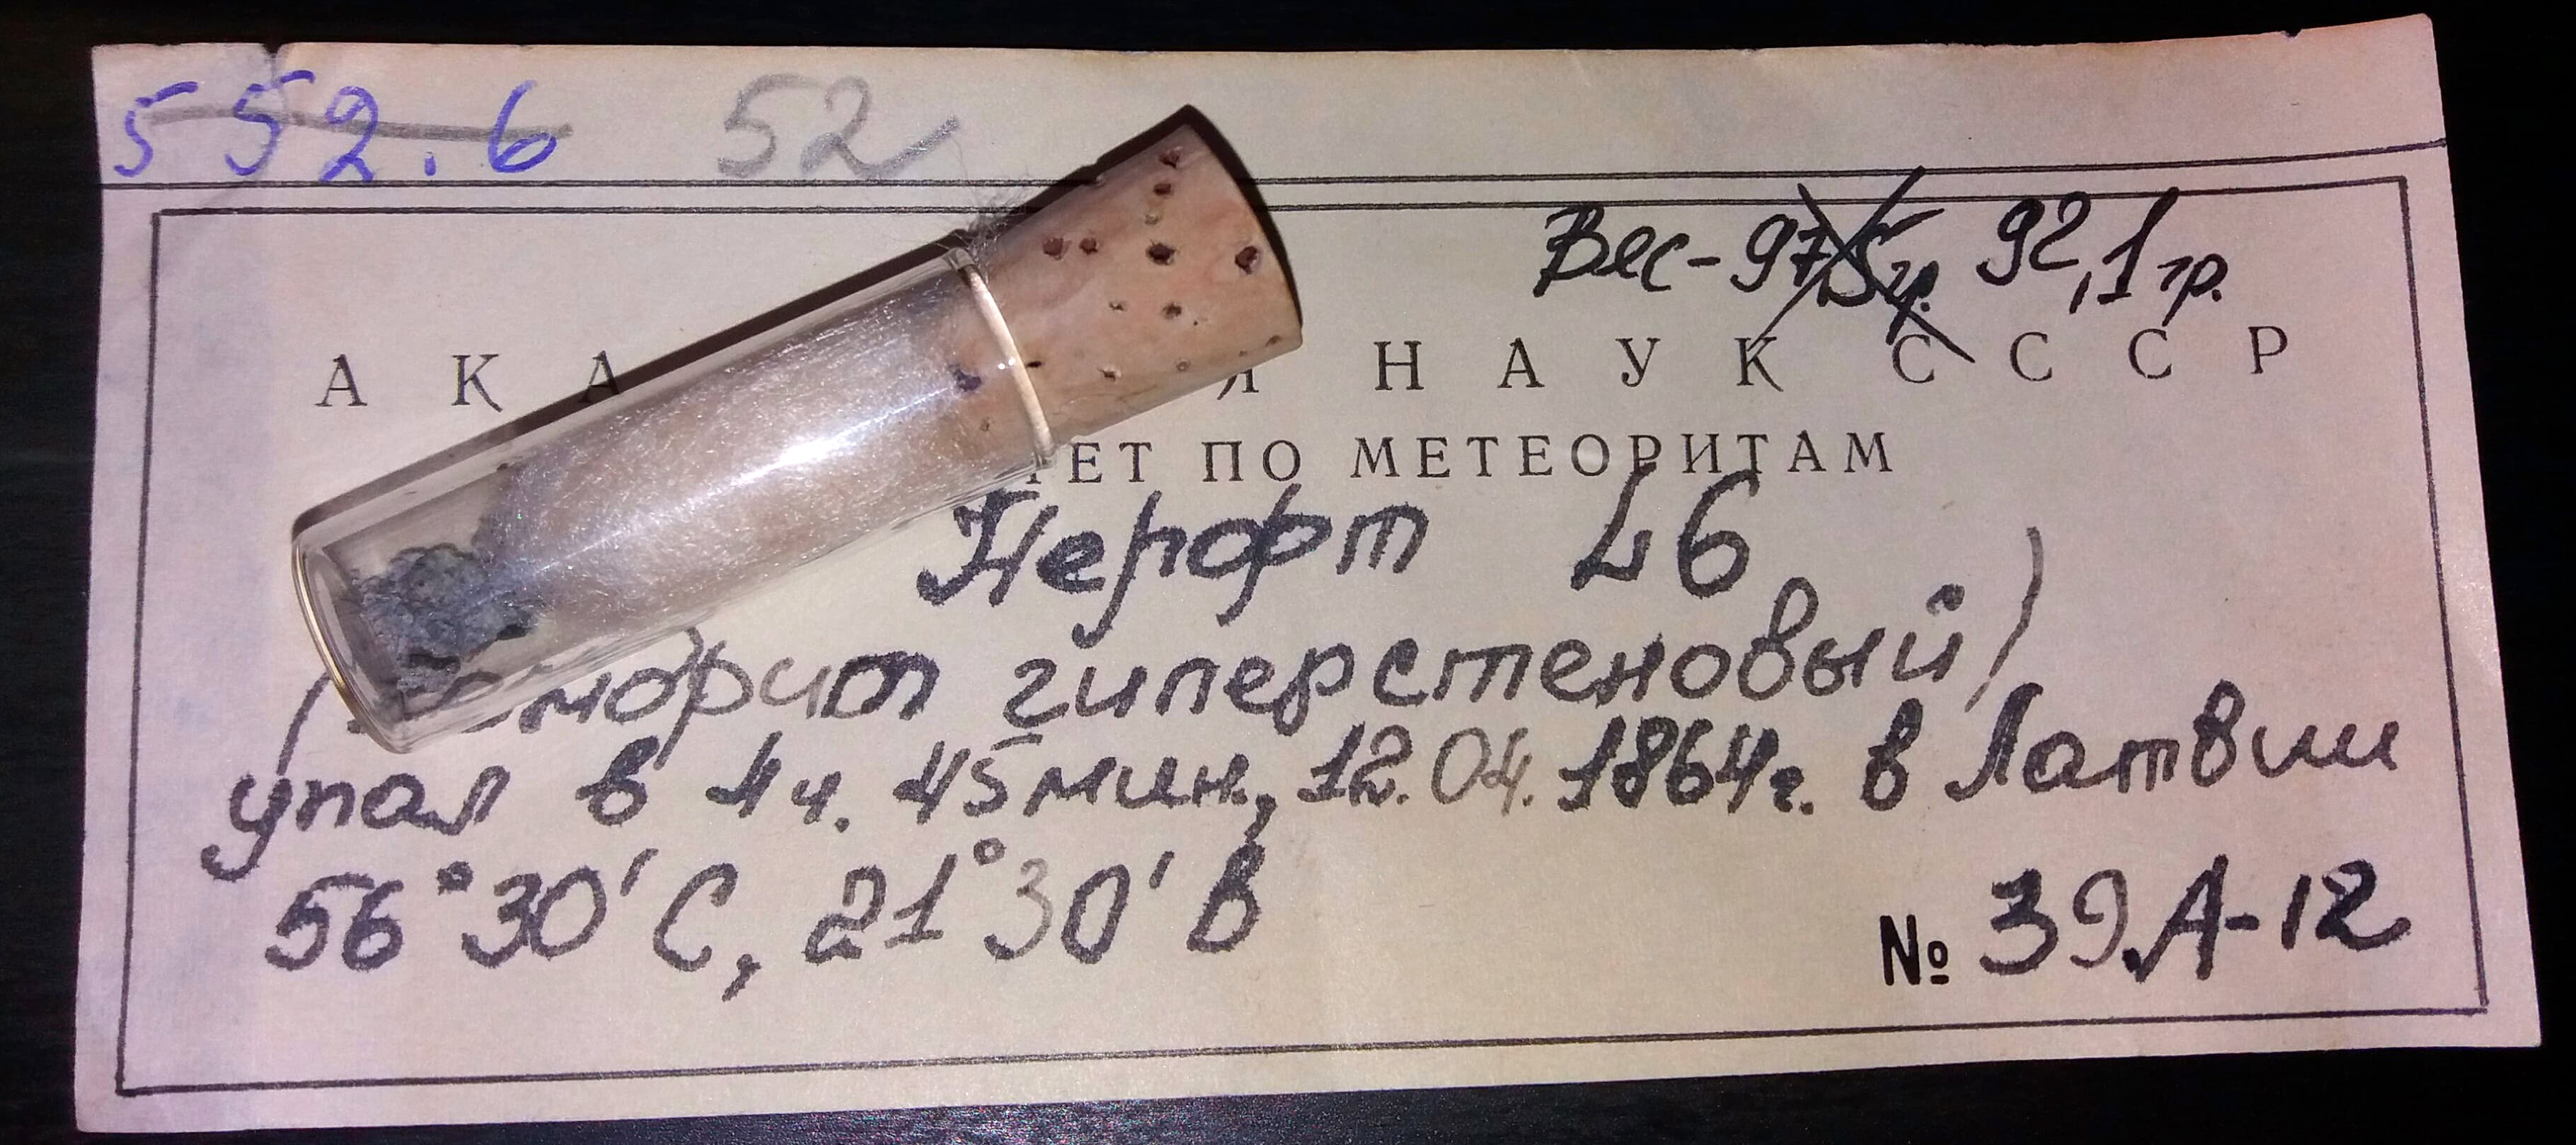 552.6 52
Вес-97,5гр. 92,1гр.
АКА Я НАУК СССР
ТЕТ ПО МЕТЕОРИТАМ
Нерфт L6
гиперстеновый)
упал в 4ч. 45мин., 12.04.1864г. в Латвии
56°30'С, 21°30'В
№ 39.А-12